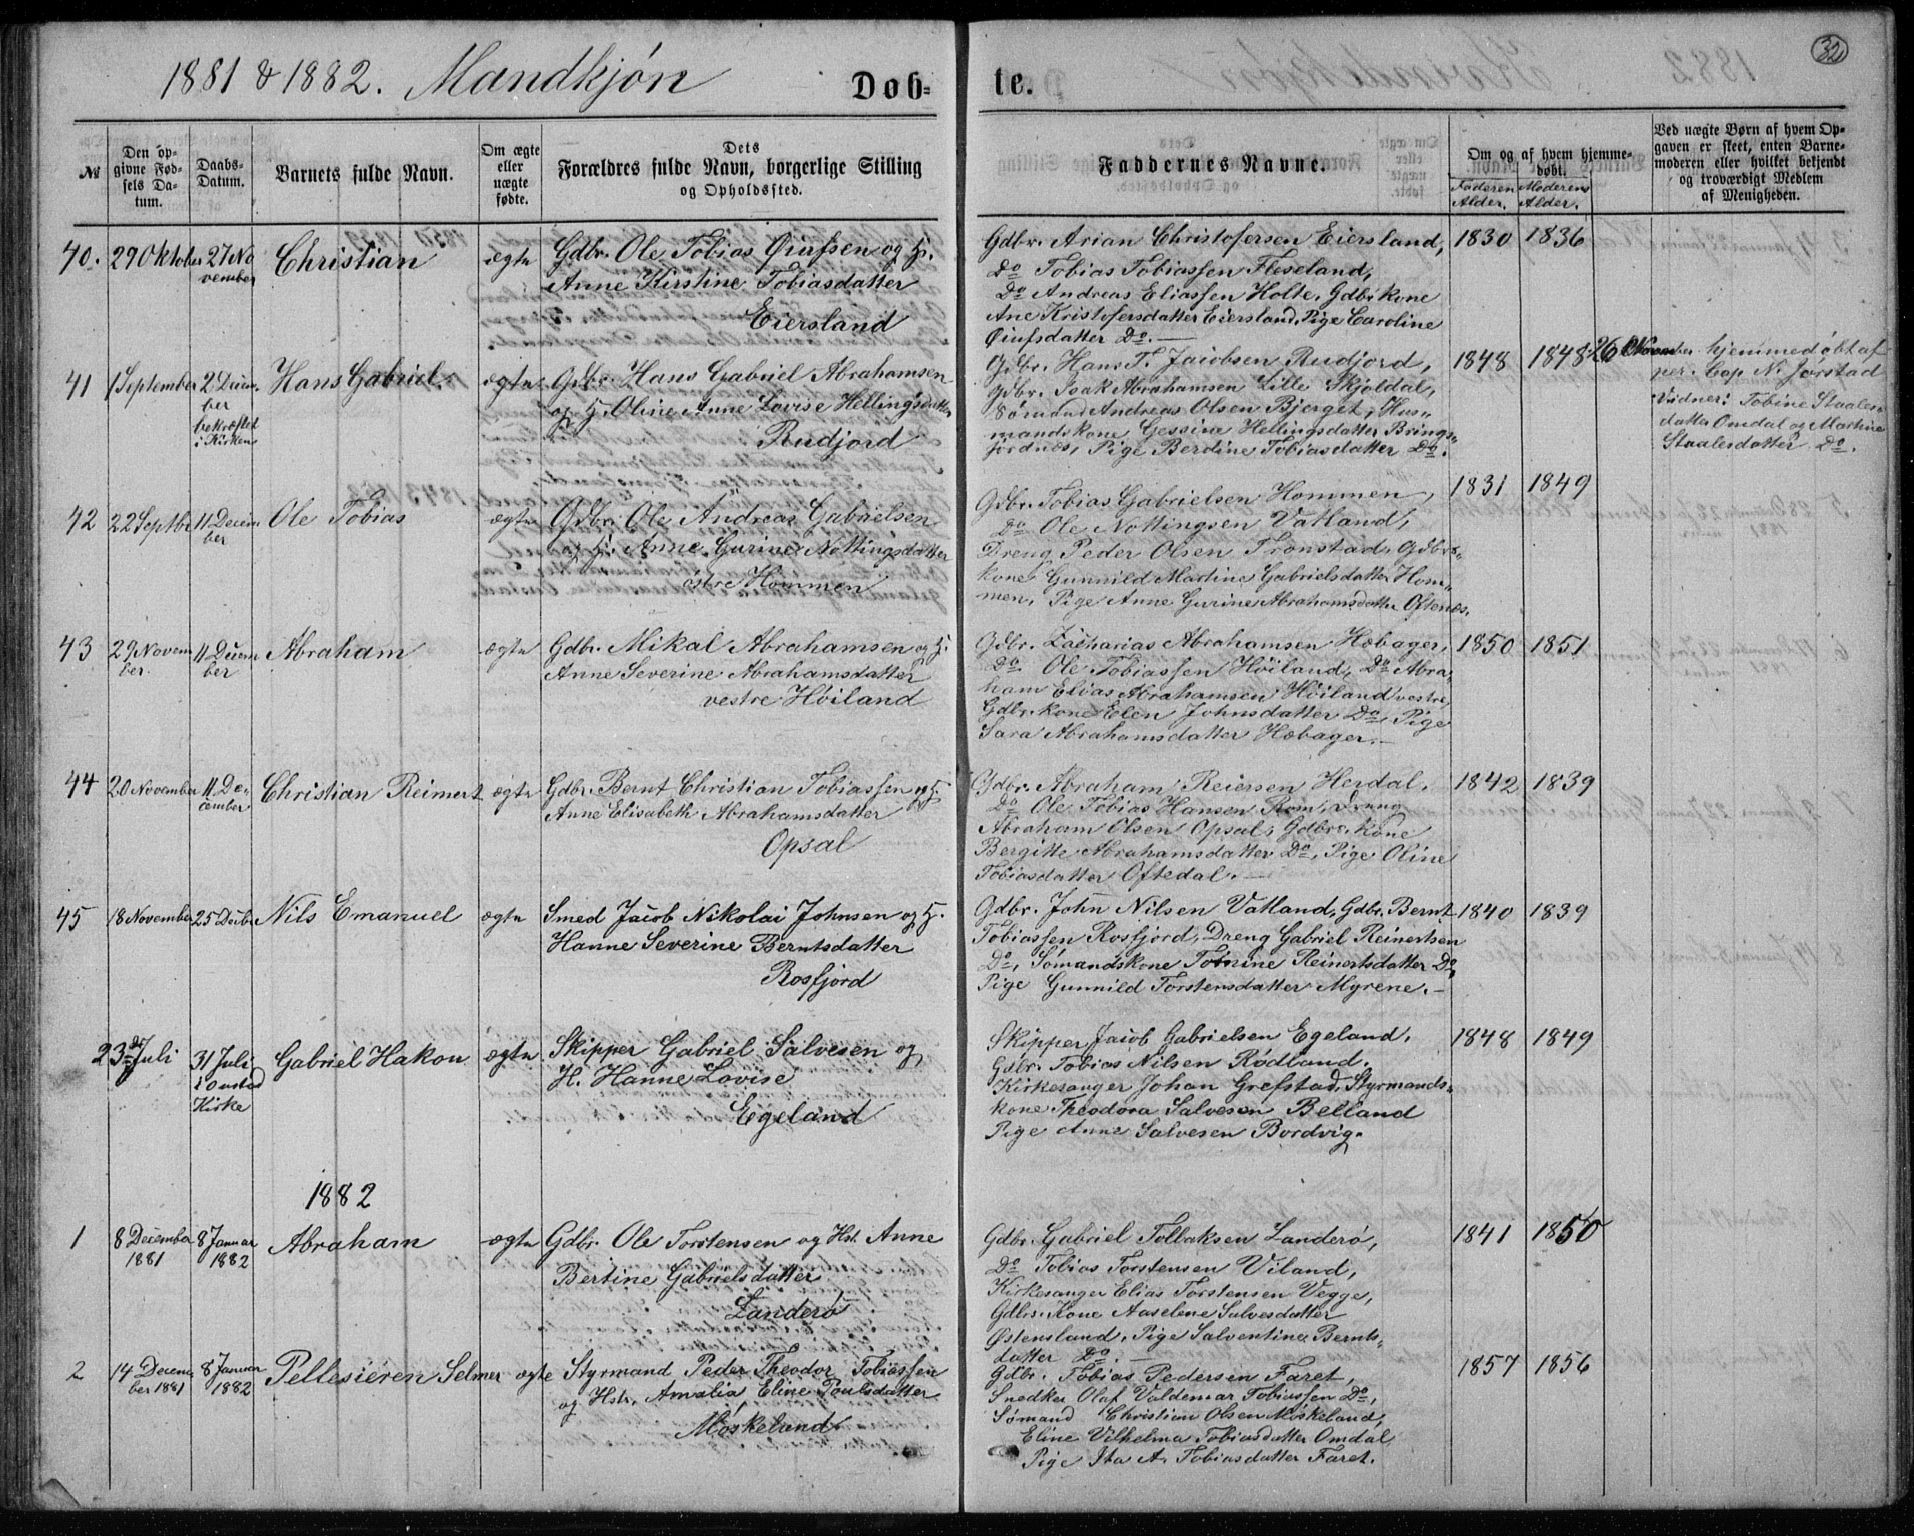 1881 & 1882. Mandkjøn
Døb-
te.
32
№
Den op-
givne Fød-
sels Da-
tum.
Daabs-
Datum.
Barnets fulde Navn.
Om ægte
eller
uægte
fødte.
Dets
Forældres fulde Navn, borgerlige Stilling
og Opholdssted.
Faddernes Navne.
Om og af hvem hjemme-
døbt.
Faderens Moderens
Alder. Alder.
Ved uægte Børn af hvem Op-
gaven er skeet, enten Barne-
moderen eller hvilket bekjendt
og troværdigt Medlem
af Menigheden.
40. 29 Oktober 27 No
vember
Christian
ægte
Gdbr. Ole Tobias Øiufsen og H.
Anne Kirstine Tobiasdatter
Eiersland
Gdbr. Arian Christofersen Eiersland,
Do Tobias Tobiassen Fleseland,
Do Andreas Eliassen Holte, Gdbrkone
Ane Kristofersdatter Eiersland, Pige Caroline
Øiufsdatter Do. —
1830 1836
41 1 September 2 Decem
ber
bekræftet
i Kirken
Hans Gabriel
ægte
Gdbr. Hans Gabriel Abrahamsen
og H. Oline Anne Lovise Hellingsdatter
Rudjord
Gdbr. Hans T. Jacobsen Rudjord,
Gdbr. Isak Abrahamsen Lille Skjoldal,
Sømand Andreas Olsen Bjerget, Hus-
mandskone Gessine Hellingsdatter Brings-
jordnes, Pige Berdine Tobiasdatter Do.
1848 1848
26 November hjemmedøbt af
per. Cap N. Jorstad
Vidner: Tobine Staales-
datter Omdal og Martine
Staalesdatter Do.
42 22 Septbr 11 Decem
ber
Ole Tobias
ægte
Gdbr. Ole Andreas Gabrielsen
og H. Anne Gurine Nottingsdatter
østre Hommen
Gdbr. Tobias Gabrielsen Hommen,
Do Ole Nottingsen Vatland,
Dreng Peder Olsen Tronstad, Gdbrs-
kone Gunnild Martine Gabrielsdatter Hom-
men, Pige Anne Gurine Abrahamsdatter Oftenæs.
1831 1849
43 29 Novem
ber. 11 Decem
ber
Abraham
ægte
Gdbr. Mikal Abrahamsen og H.
Anne Severine Abrahamsdatter
vestre Høiland
Gdbr. Zacharias Abrahamsen Hæbager,
Do Ole Tobiassen Høiland, Do Abra-
ham Elias Abrahamsen Høiland vestre,
Gdbr. kone Elen Johnsdatter Do, Pige
Sara Abrahamsdatter Hæbager. —
1850 1851
44 20 November 11. De-
cember
Christian Reimert
ægte
Gdbr. Bernt Christian Tobiassen og H.
Anne Elisabeth Abrahamsdatter
Opsal
Gdbr. Abraham Reiersen Herdal,
Do Ole Tobias Hansen Rom, Dreng
Abraham Olsen Opsal, Gdbrs. kone
Bergitte Abrahamsdatter Do, Pige Oline
Tobiasdatter Oftedal. —
1842 1839
45 18 November 25 Decbr
Nils Emanuel
ægte
Smed Jacob Nikolai Johnsen og H.
Hanne Severine Berntsdatter
Rosfjord
Gdbr. John Nilsen Vatland, Gdbr. Bernt
Tobiassen Rosfjord, Dreng Gabriel Reinertsen
Do, Sømandskone Tomine Reinertsdatter Do
Pige Gunnild Torstensdatter Myrene. —
1840 1839
23de Juli 31 Juli
i Onstad
Kirke
Gabriel Hakon
ægte
Skipper Gabriel Salvesen og
H. Hanne Lovise
Egeland
Skipper Jacob Gabrielsen Egeland,
Gdbr. Tobias Nilsen Rødland,
Kirkesanger Johan Grefstad, Styrmands-
kone Theodora Salvesen Belland
Pige Anne Salvesen Bordvig.
1848 1849
1882
1 8 December
1881 8 Januar
1882
Abraham
ægte
Gdbr. Ole Torstensen og Hst. Anne
Bertine Gabrielsdatter
Landerø
Gdbr. Gabriel Tollaksen Landerø,
Do Tobias Torstensen Viland,
Kirkesanger Elias Torstensen Vegge,
Gdbrs. Kone Aaselene Salvesdatter
Østensland, Pige Salventine Bernts-
datter Do. —
1841 1850
2 14 Decem
ber 1881 8 Januar
1882
Pellesieren Selmer
ægte
Styrmand Peder Theodor Tobiassen
og Hstr. Amalia Eline Poulsdatter
Møskeland
Gdbr. Tobias Pedersen Faret,
Snedker Olaf Valdemar Tobiassen Do,
Sømand Christian Olsen Møskeland,
Eline Vilhelma Tobiasdatter Omdal,
Pige Ita A. Tobiasdatter Faret.
1857 1856